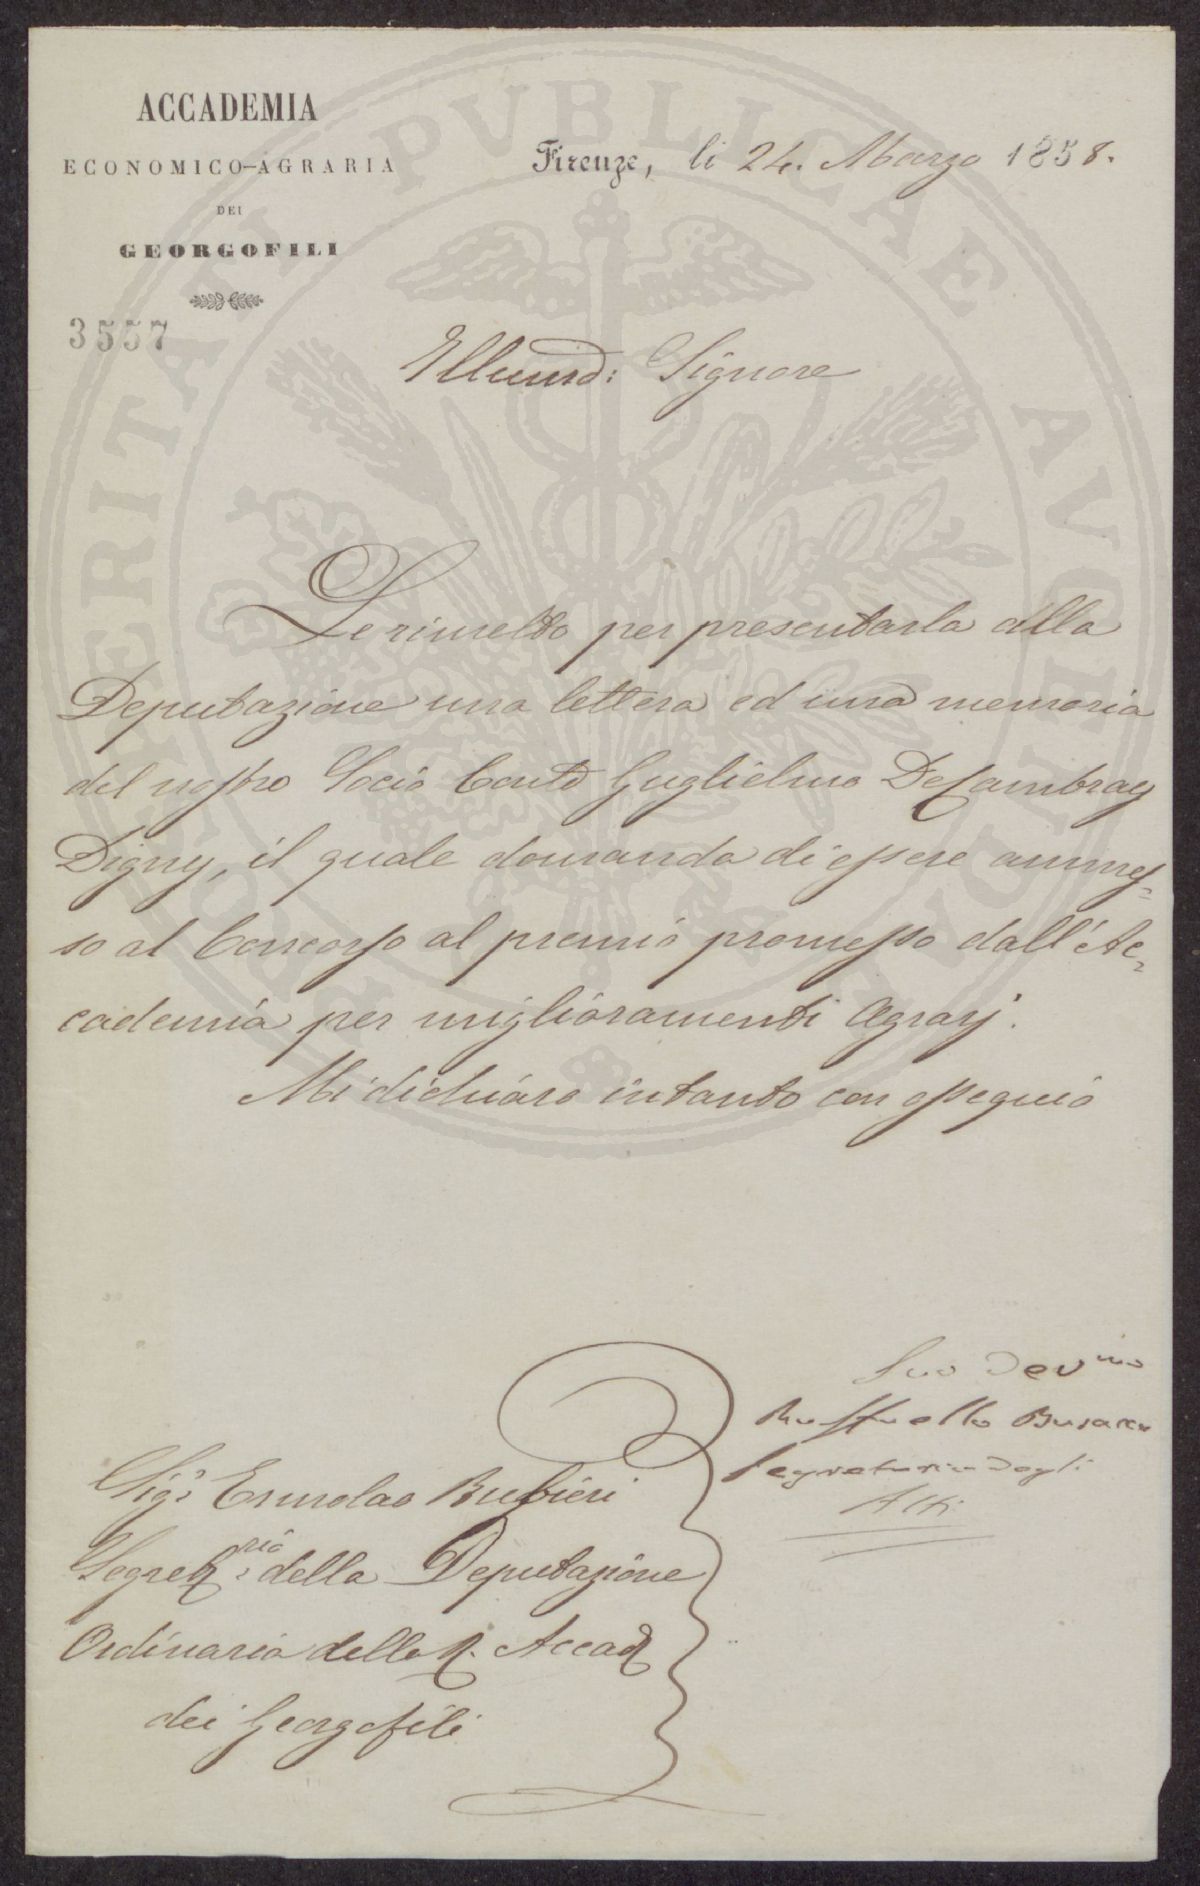 ACCADEMIA
ECONOMICO-AGRARIA
DEI
GEORGOFILI
3557
Firenze, li 24. Marzo 1858.
Illumo: Signore
Le rimetto per presentarla alla
Deputazione una lettera ed una memoria
del nostro Socio Conte Guglielmo DeCambray
Digny, il quale domanda di essere ammes=
so al Concorso al premio promesso dall'Ac=
cademia per miglioramenti Agrarj.
Mi dichiaro intanto con ossequio
Suo Devmo
Raffaello Busacca
Segretario degli
Atti
Sigr Ermolao Rubieri
Segretrio della Deputazione
Ordinaria della R. Accad
dei Georgofili
PVBLICAE AVGENDAE